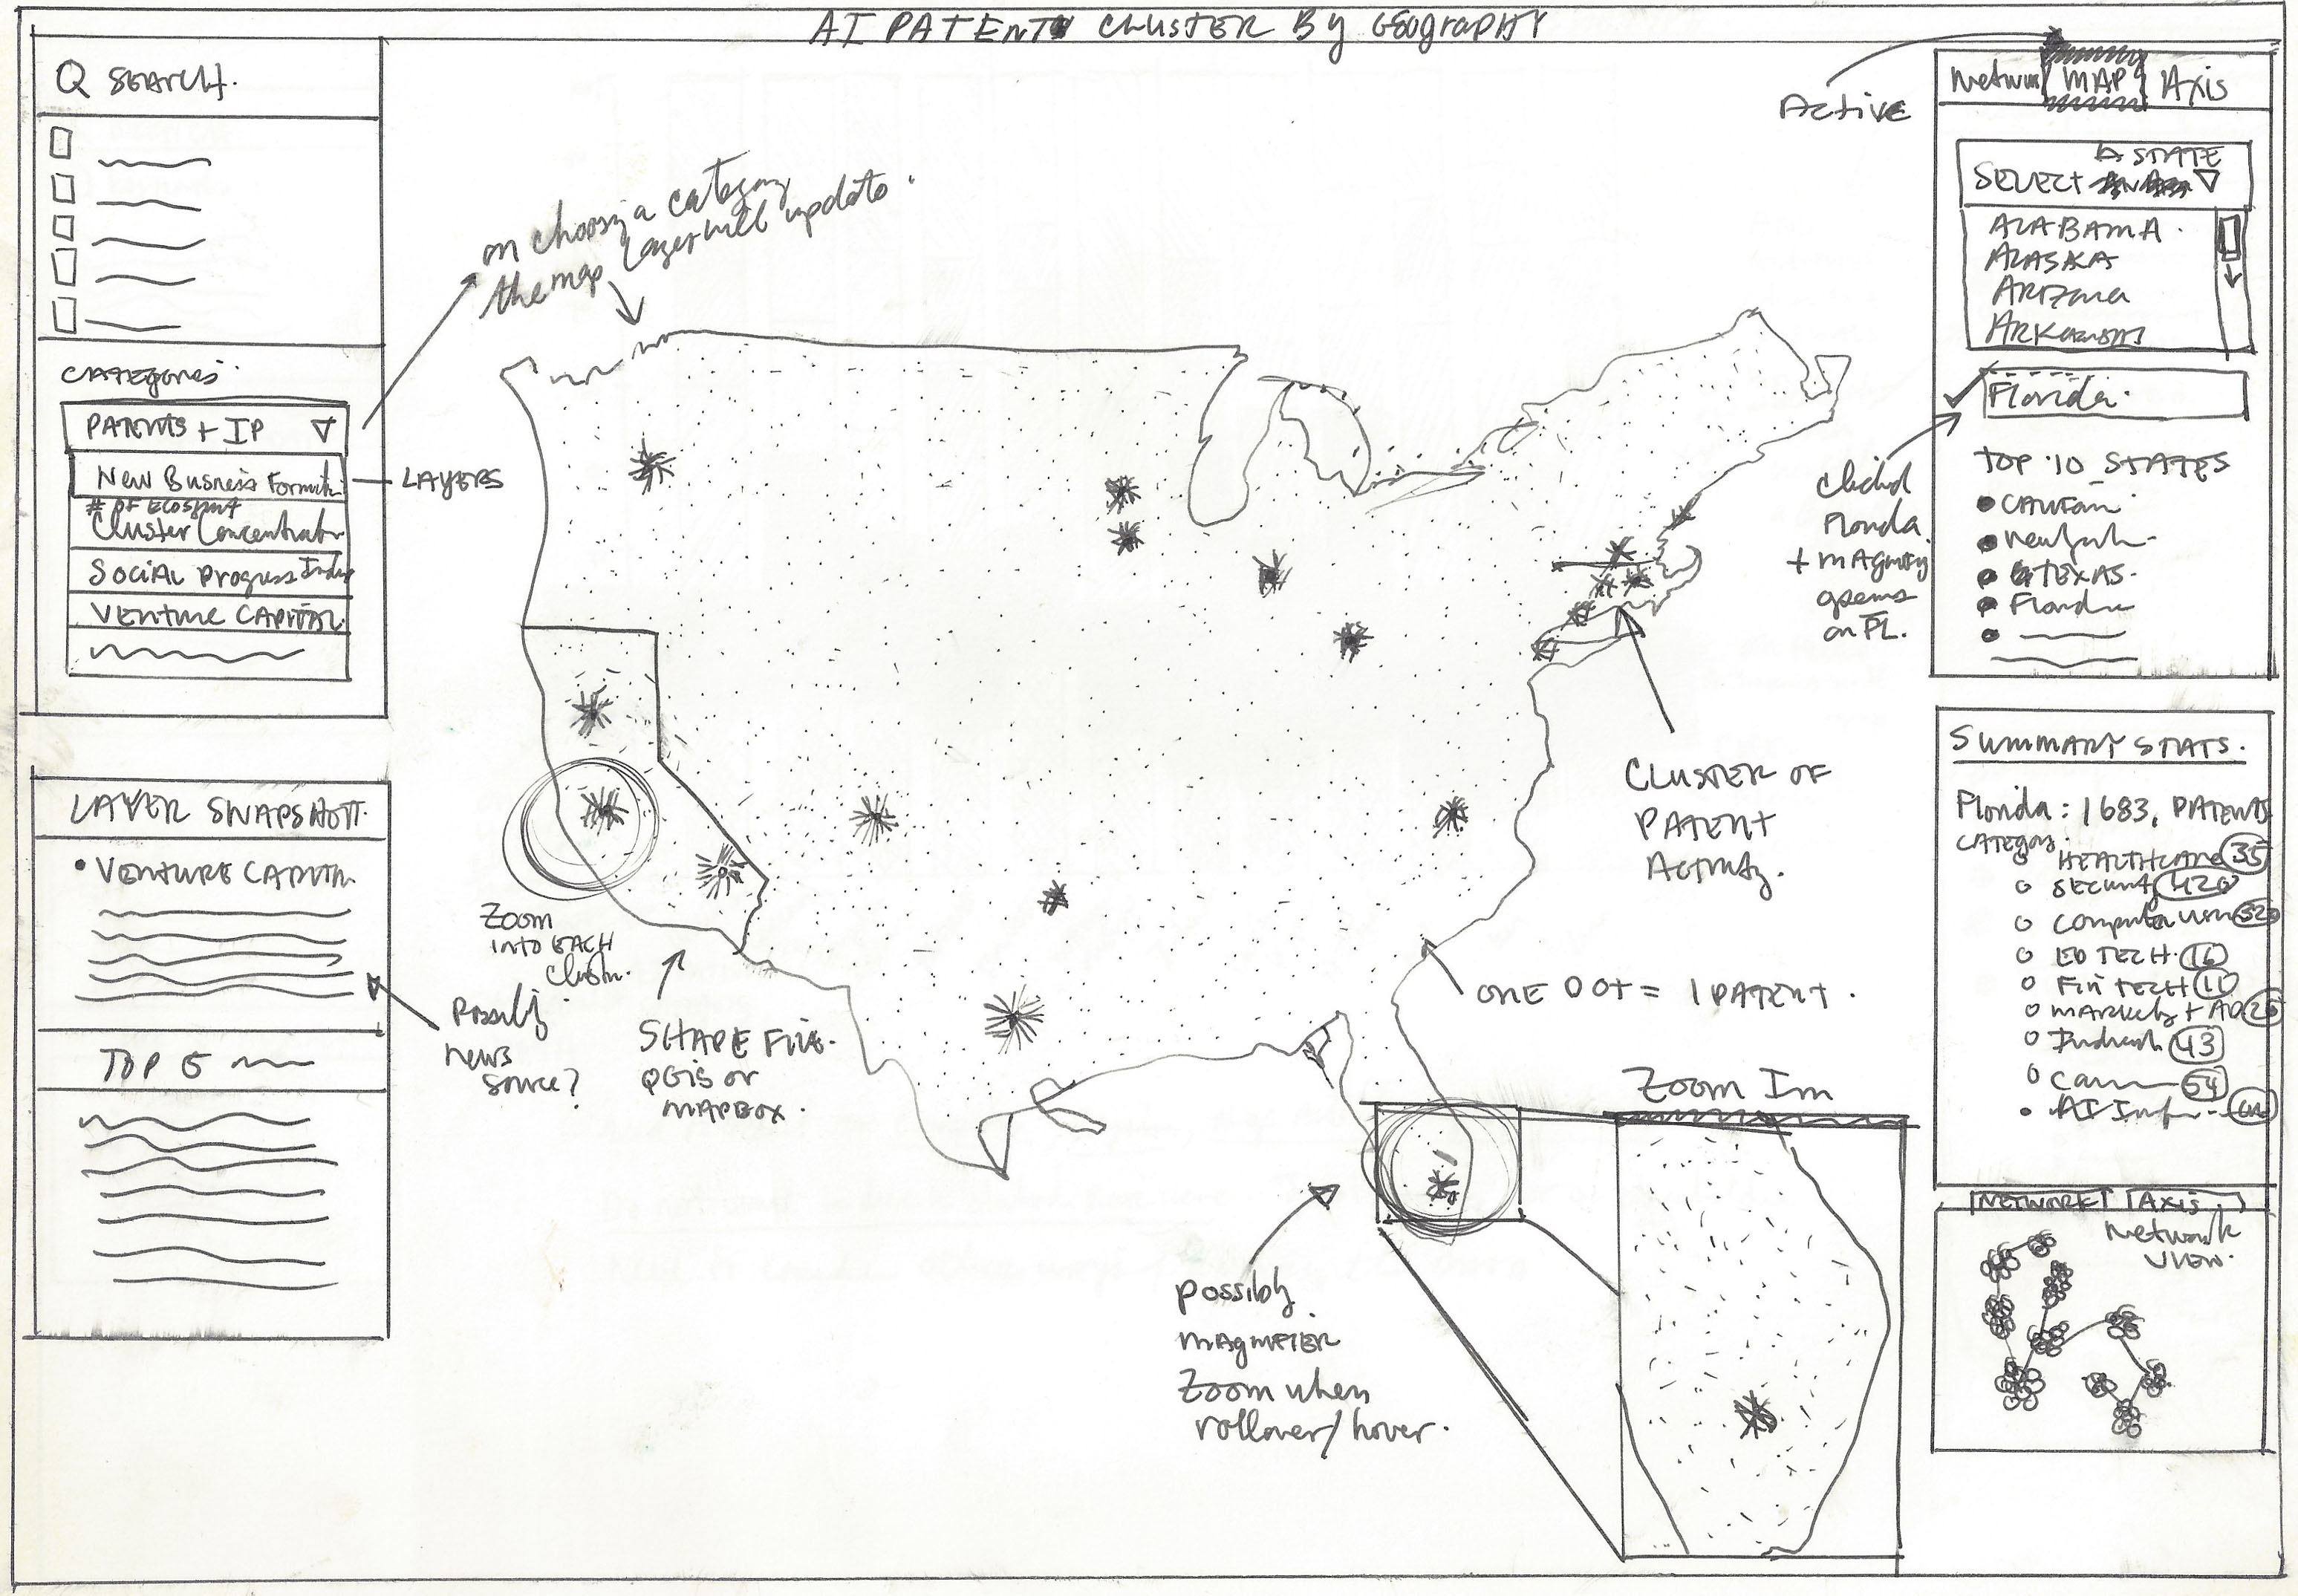 AI PATENT CLUSTER By GEOgraPHY
Q SEARCH.
CATEgories
PATENTS + IP
New Business Formati
# OF ECOSYST
Cluster Concentratn
SOCIAL Progress Index
VENTURE CAPITAL
LAYERS
on choosing a category
the map layer will update.
LAYER SNAPSHOT.
• VENTURE CAPITAL
Possibly
news
source?
TOP 5
Zoom
into EACH
cluster.
SHAPE FILE.
QGIS or
MAPBOX.
CLUSTER OF
PATENT
Activity.
ONE DOT = 1 PATENT.
Zoom In
possibly
magnifier
Zoom when
rollover/hover.
Active
Network
MAP
Axis
a STATE
SELECT
ALABAMA
ALASKA
ARIZona
ARKansas
Florida.
clicked
Florida
+ magnify
opens
on FL.
TOP 10 STATES
CALIForni
New York
TEXAS.
Florida
SUMMARY STATS.
Florida: 1683, PATENTS
CATEgory:
HEALTHCARE 35
Security 420
Computer Visn 52
ED TECH. 16
Fin TECH 11
Marketg + AD 26
Industl 43
54
AI
NETWORK
Axis
Network
View.